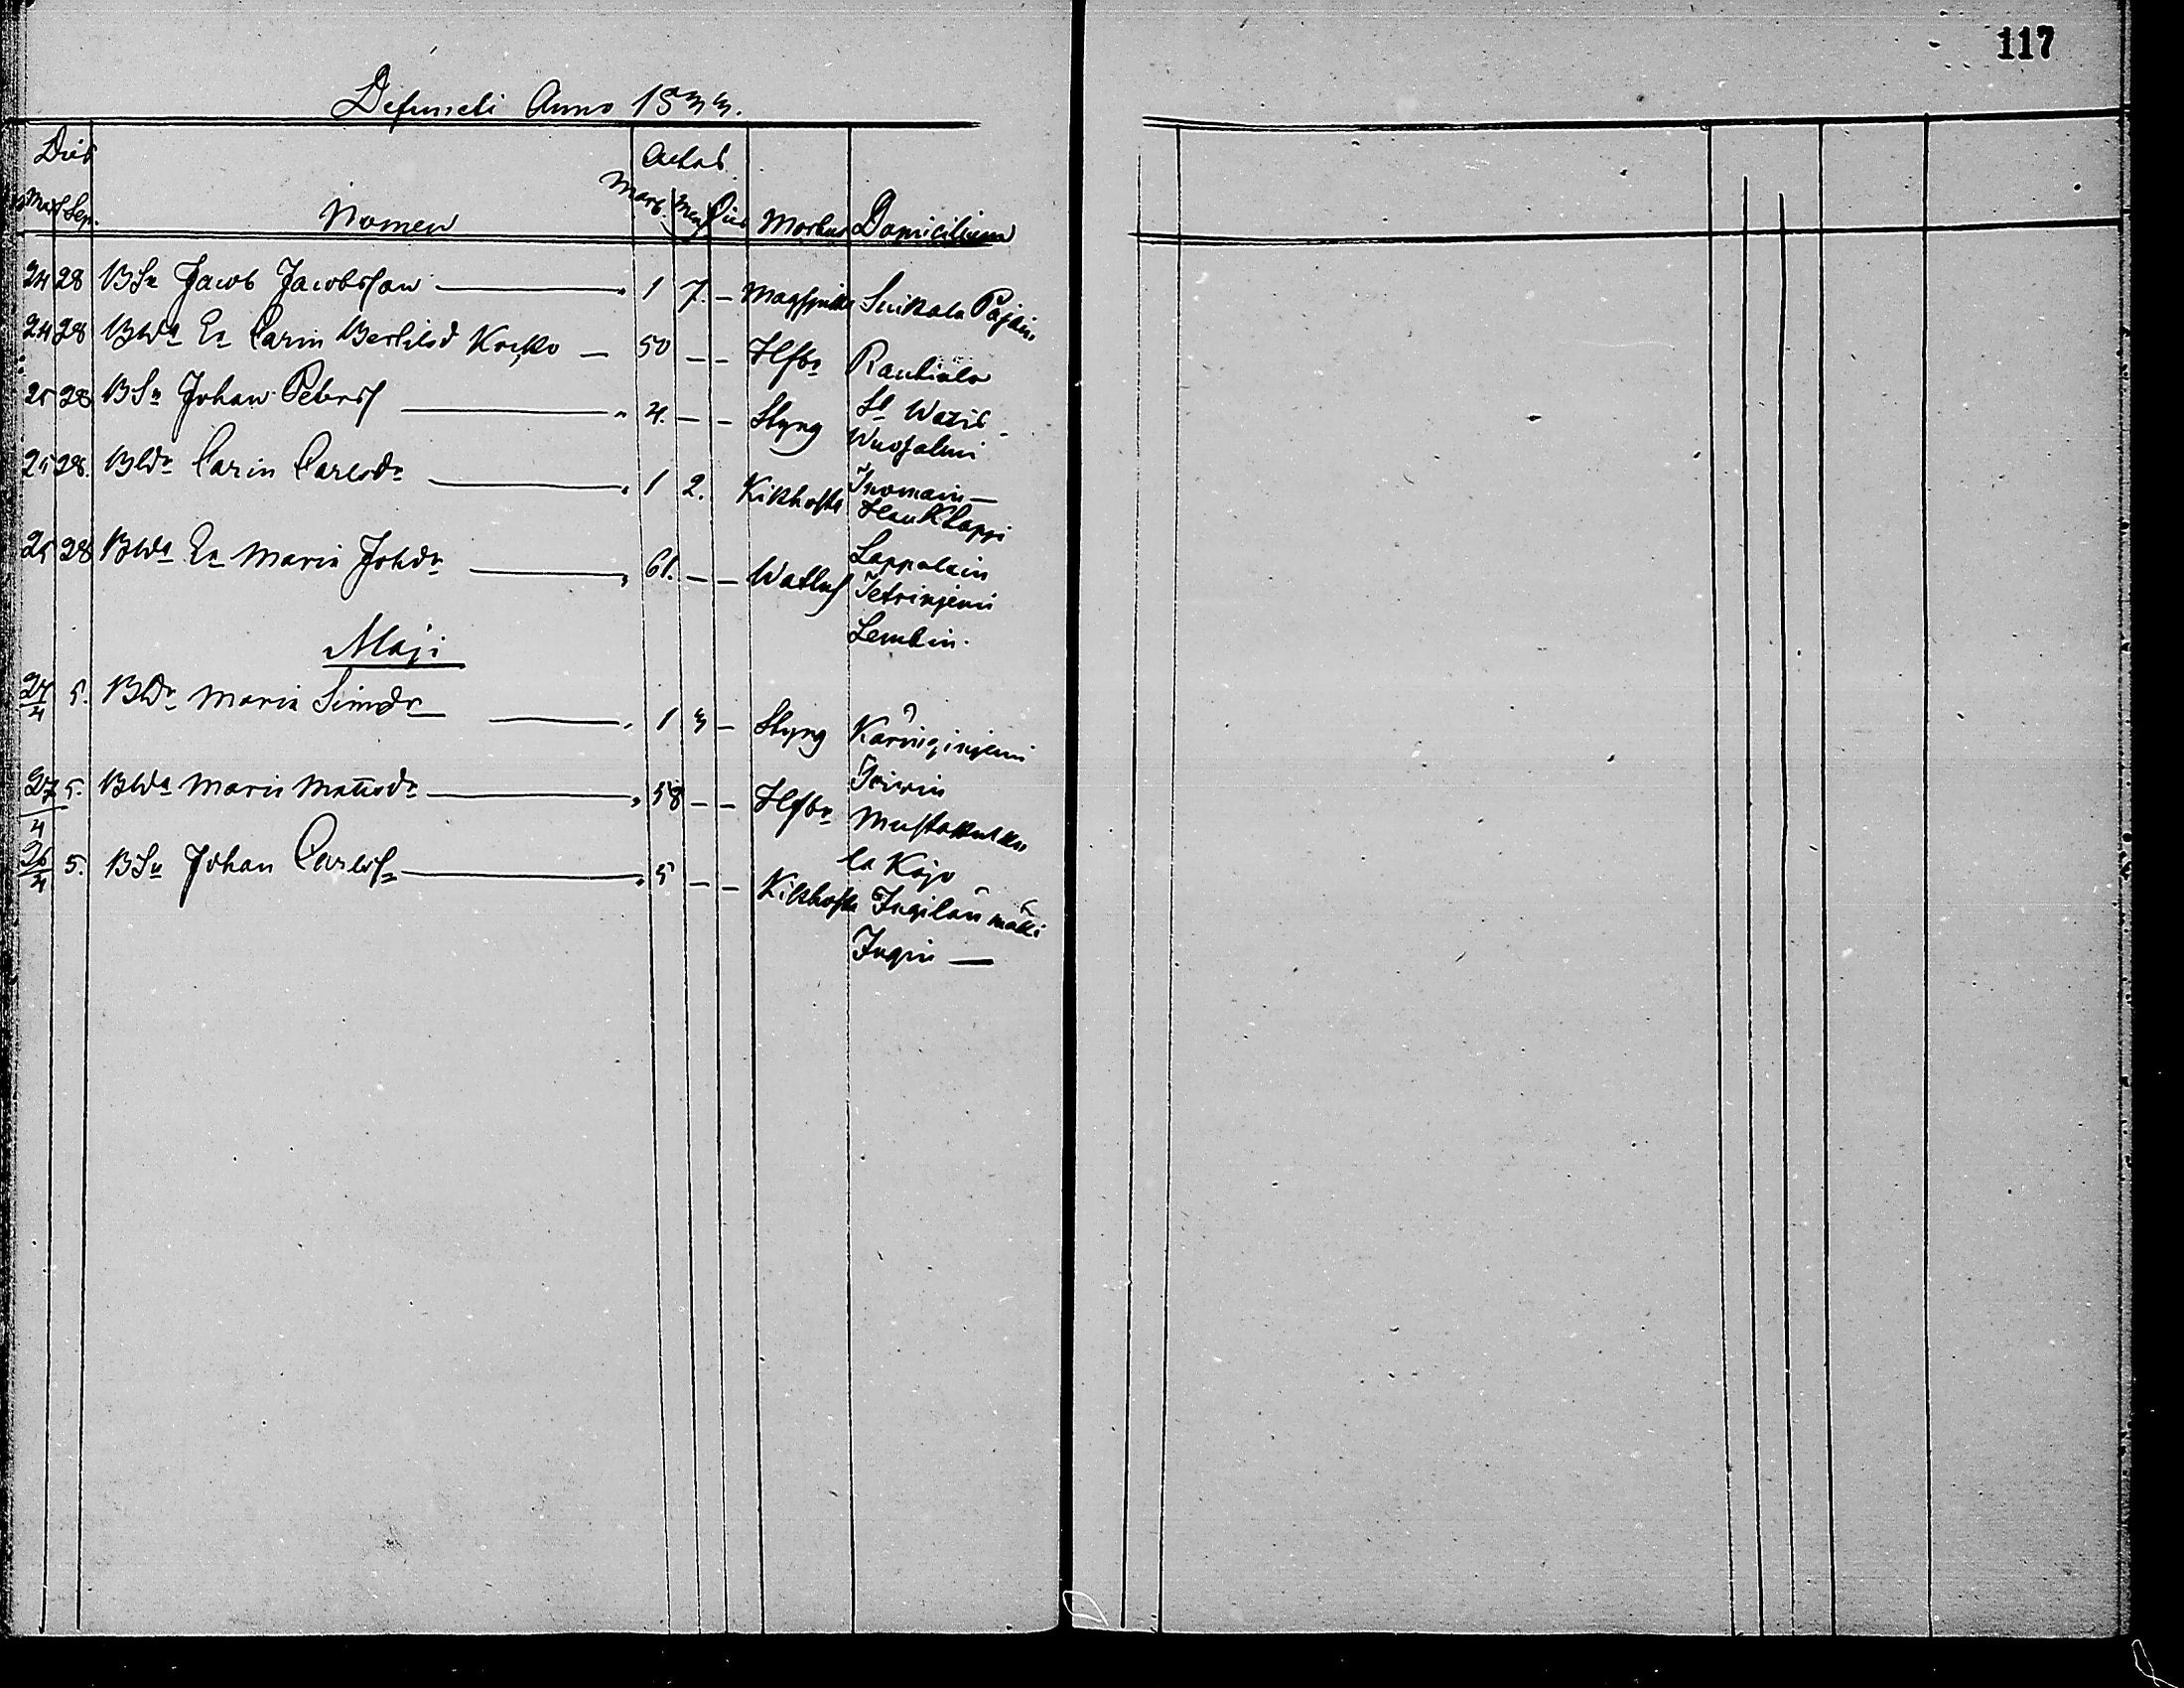 117
Defuncti Anno 1833.
Dies Aetas
Mort Sep. Nomen Mares. Men Dies Morbus Domicilium
24 28 BSn Jacob Jacobsson — 1 7. — Magsjuka Suikala Pajari
24 28 BWa En Carin Bertilsd Krekko — 50 — — Hlfbr Rautiala
25 28 BSn Johan Petersf — 4. — — Styng St Watis
Wuosalmi
25 28. BDr Carin Carlsdr — 1 2. Kikhosta Inomain —
Hauklappi
25 28 BWa En Maria Johdr — 61. — — Watlus Lappalain
Tetrinjemi
Lembin.
Maji
27/4 5. BDr Maria Simdr — 1 3 — Styng Kärniginjemi
Irivin
27/4 5. BWa Maria Mattsdr — 58 — — Hlfbr Mustakulku
la Kojo
26/4 5. BSn Johan Carlsf — 5 — — Kikhosta Inqilän mäki
Inqin —